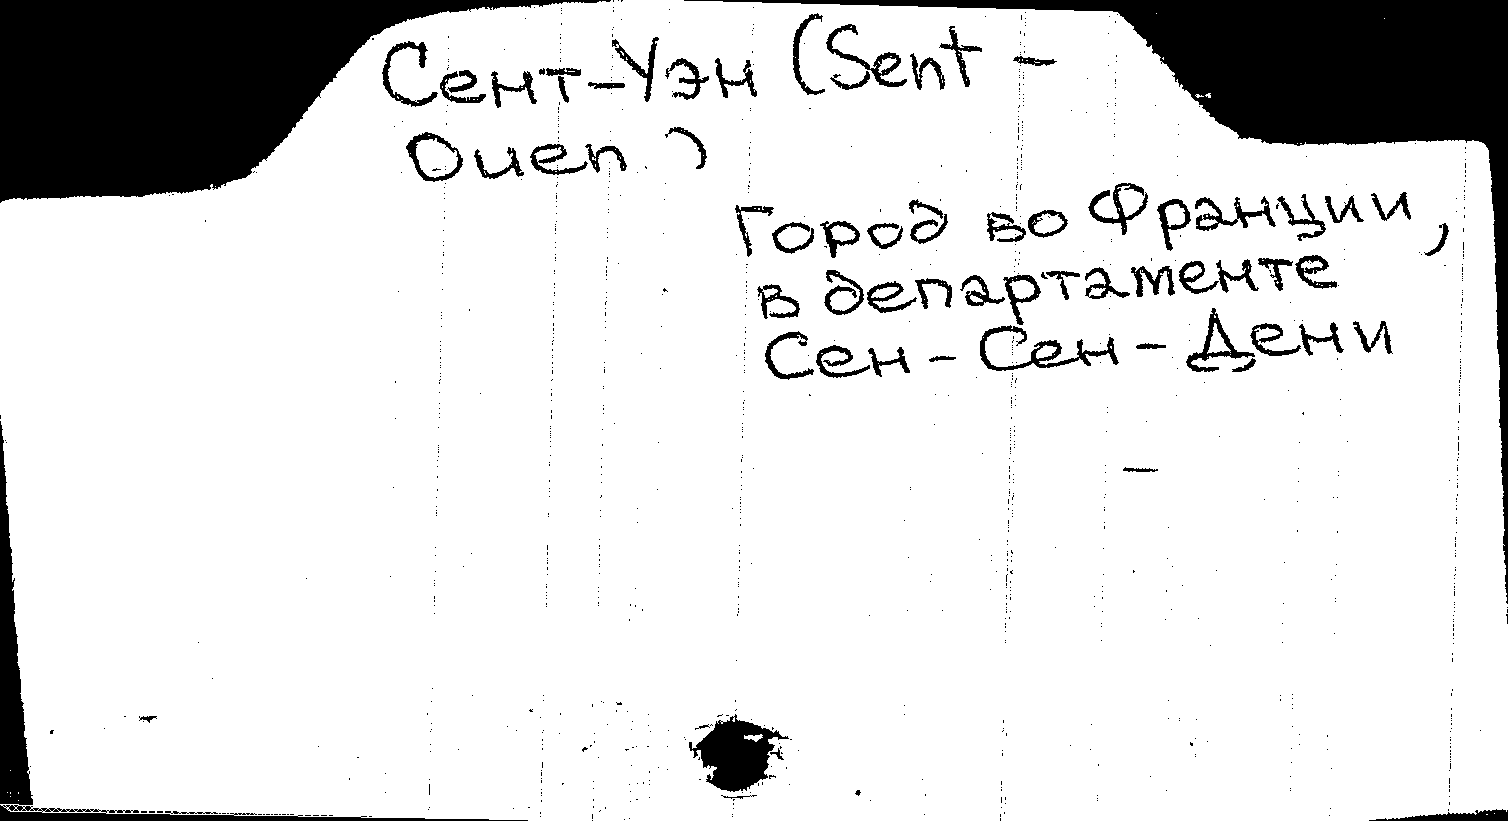 Сент-Уэн (Sent -
Ouen )
Город во Франции,
в департаменте
Сен - Сен - Дени